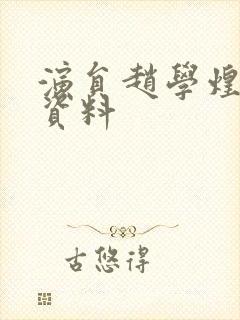 演員趙學煌
資料
古悠得